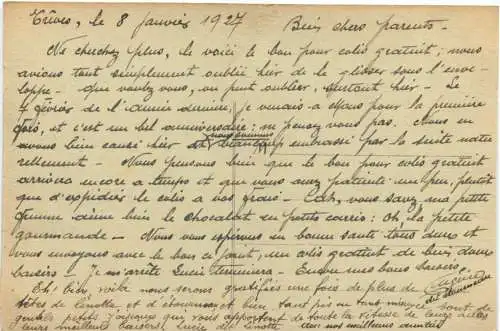 Trèves, le 8 Janvier 1927 Bien chers parents -
Ne cherchez plus, le voici le bon pour colis gratuit; nous
avions tout simplement oublié hier de le glisser sous l'enve-
loppe - que voulez vous, on peut oublier, surtout hier - Le
7 février de l'année dernière, je venais à Mans pour la première
fois, et c'est un bel anniversaire; ne pensez vous pas. Nous en
avons bien causé hier et nous sommes beaucoup embrassé par la suite natu-
rellement - Nous pensons bien que le bon pour colis gratuit
arrivera encore à temps et que vous aurez patienté un peu, plutôt
que d'expédier le colis à vos frais - Car, vous savez ma petite
femme aime bien le chocolat en petits carrés; Oh la petite
gourmande - Nous vous espérons en bonne santé tous deux et
vous envoyons avec le bon ci-joint, un colis gratuit de bien doux
baisers - Je m'arrête Lucie terminera - Encore mes bons baisers,
Eugène
Eh! bien voilà nous serons gratifiés une fois de plus de
têtes de linotte, et d'étourneaux et bien tant pis
gentils petits oiseaux qui vous apportent de toute la vitesse de leurs ailes
leurs meilleurs baisers. Lucie avec nos meilleures amitiés